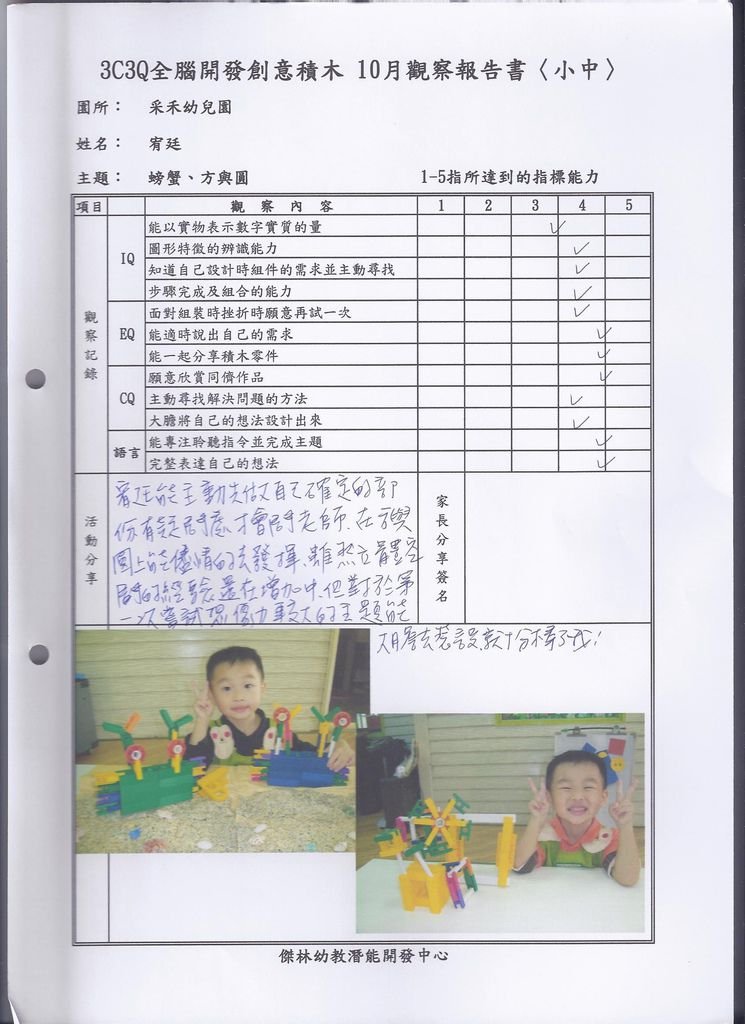 3C3Q全腦開發創意積木 10月觀察報告書〈小中〉
園所： 采禾幼兒園
姓名： 宥廷
主題： 螃蟹、方與圓 1-5指所達到的指標能力
項目 觀察內容 1 2 3 4 5
觀察記錄
IQ
能以實物表示數字實質的量
圖形特徵的辨識能力
知道自己設計時組件的需求並主動尋找
步驟完成及組合的能力
EQ
面對組裝時挫折時願意再試一次
能適時說出自己的需求
能一起分享積木零件
CQ
願意欣賞同儕作品
主動尋找解決問題的方法
大膽將自己的想法設計出來
語言
能專注聆聽指令並完成主題
完整表達自己的想法
活動分享
宥廷能主動先做自己確定的部
份有疑問處才會問老師.在
圖上能儘情的去發揮.雖然立體空
間的經驗還在增加中.但對於第
一次嘗試 的主題能
家長分享簽名
十分棒了哦!
傑林幼教潛能開發中心